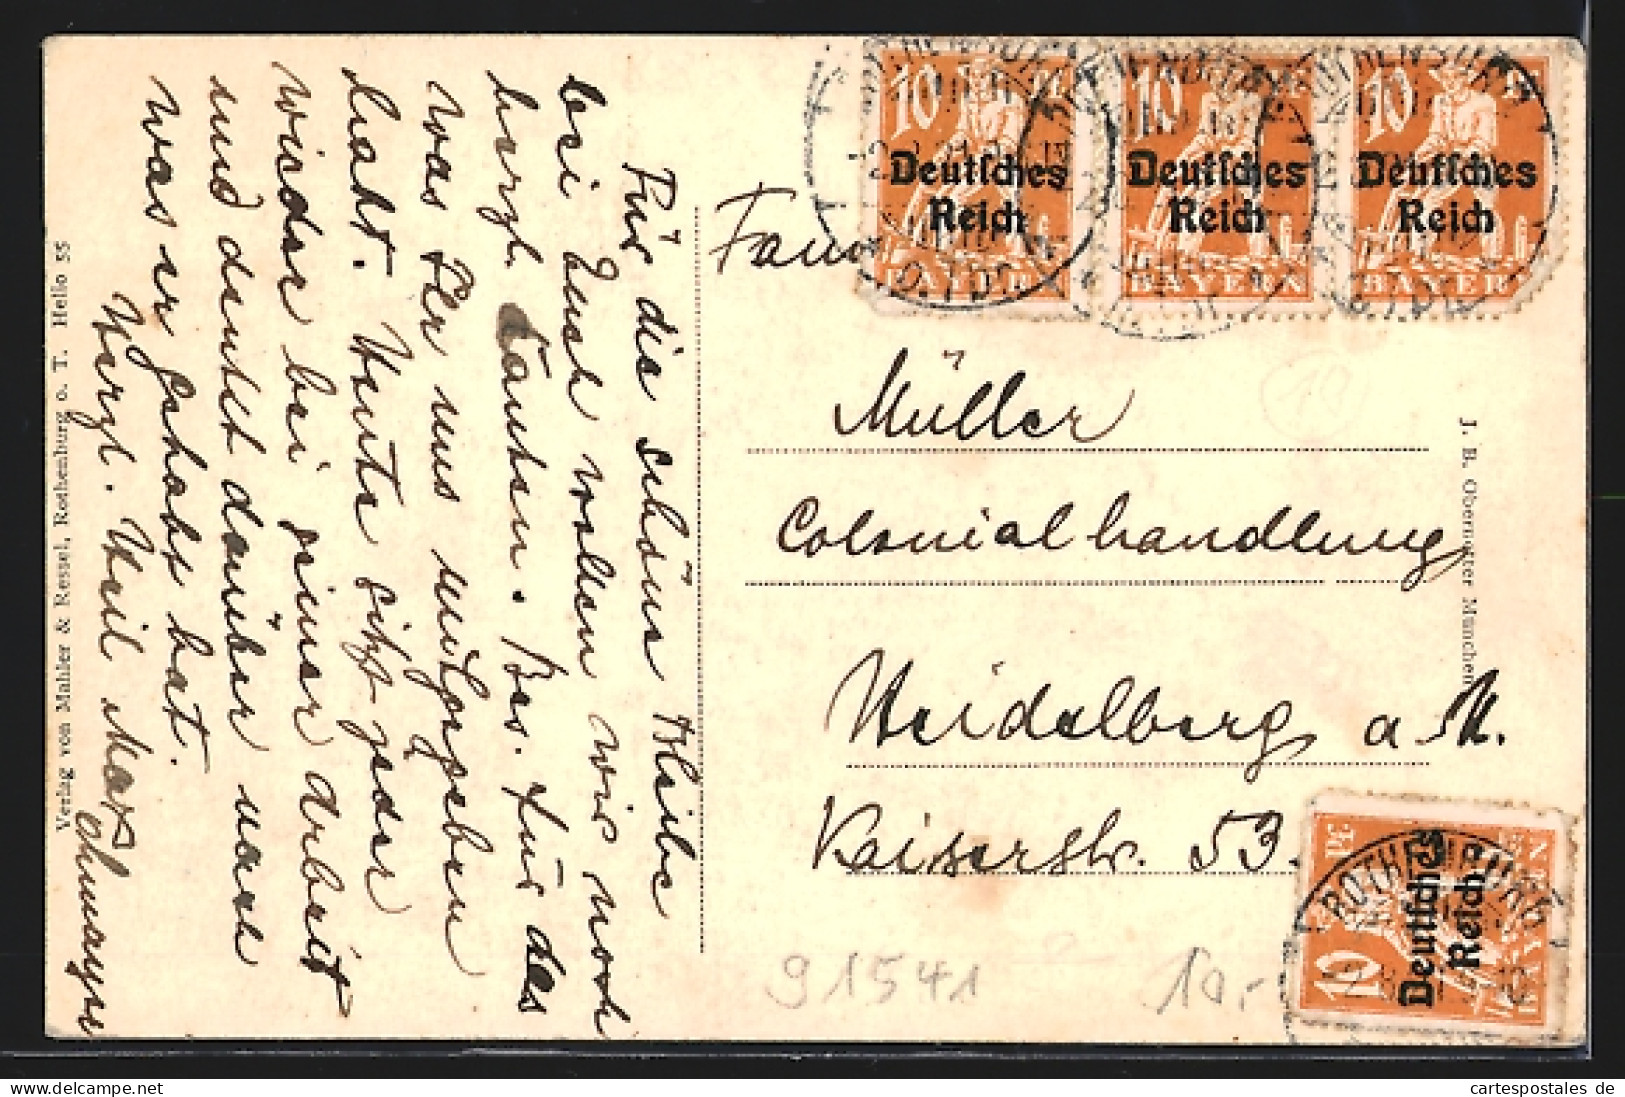 Für die schöne Bleibe
bei Euch wollen wir noch
herzl. danken. Bes. für das
was Ihr uns mitgegeben
habt. Heute sitzt jeder
wieder bei seiner Arbeit
und denkt darüber nach
was er gehabt hat.
Herzl. Heil
Verlag von Mahler & Ressel, Rothenburg o. T. Helio 55
10
Deutsches
Reich
BAYERN
10
Deutsches
Reich
BAYERN
10
Deutsches
Reich
BAYERN
Fam
Müller
Colonialhandlung
Heidelberg a. N.
Kaiserstr. 53.
J. B. Obernetter München
ROTHENBURG
10
Deutsches
Reich
BAYERN
91541
10.-
delcampe.net
cartespostales de